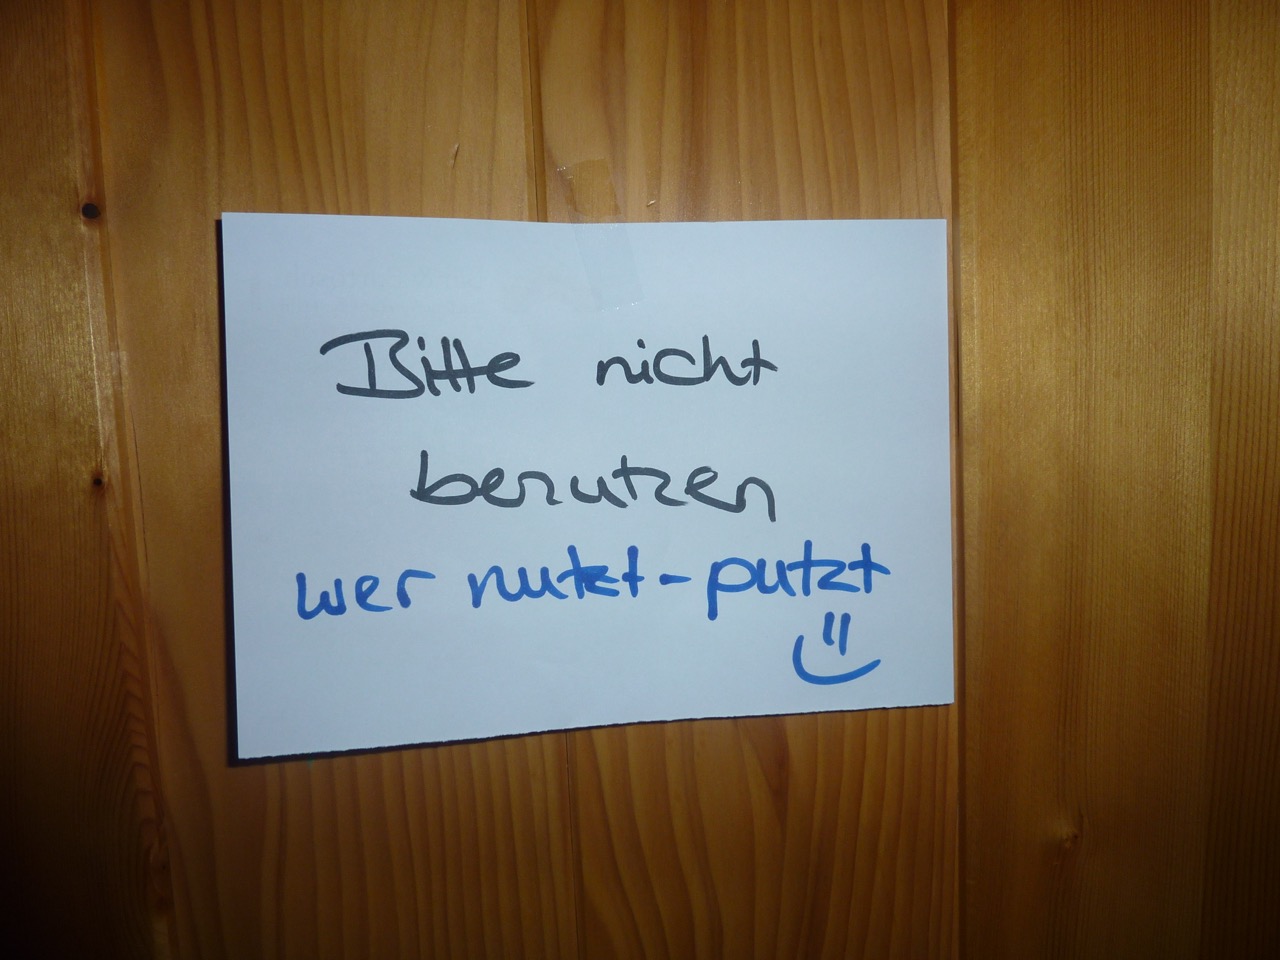 Bitte nicht
benutzen
wer nutzt - putzt